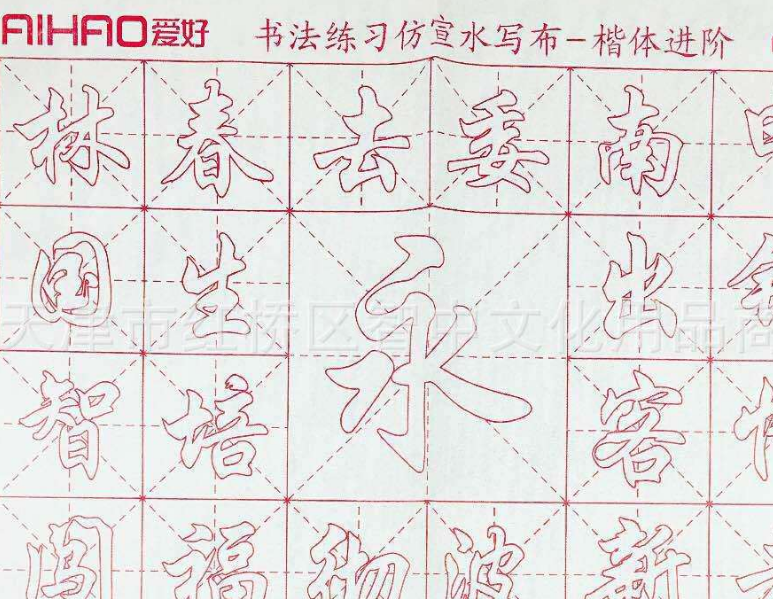 AIHAO爱好 书法练习仿宣水写布-楷体进阶
林春去委南
国生永出
天津市红桥区智中文化用品商
智培容
阔福物波新